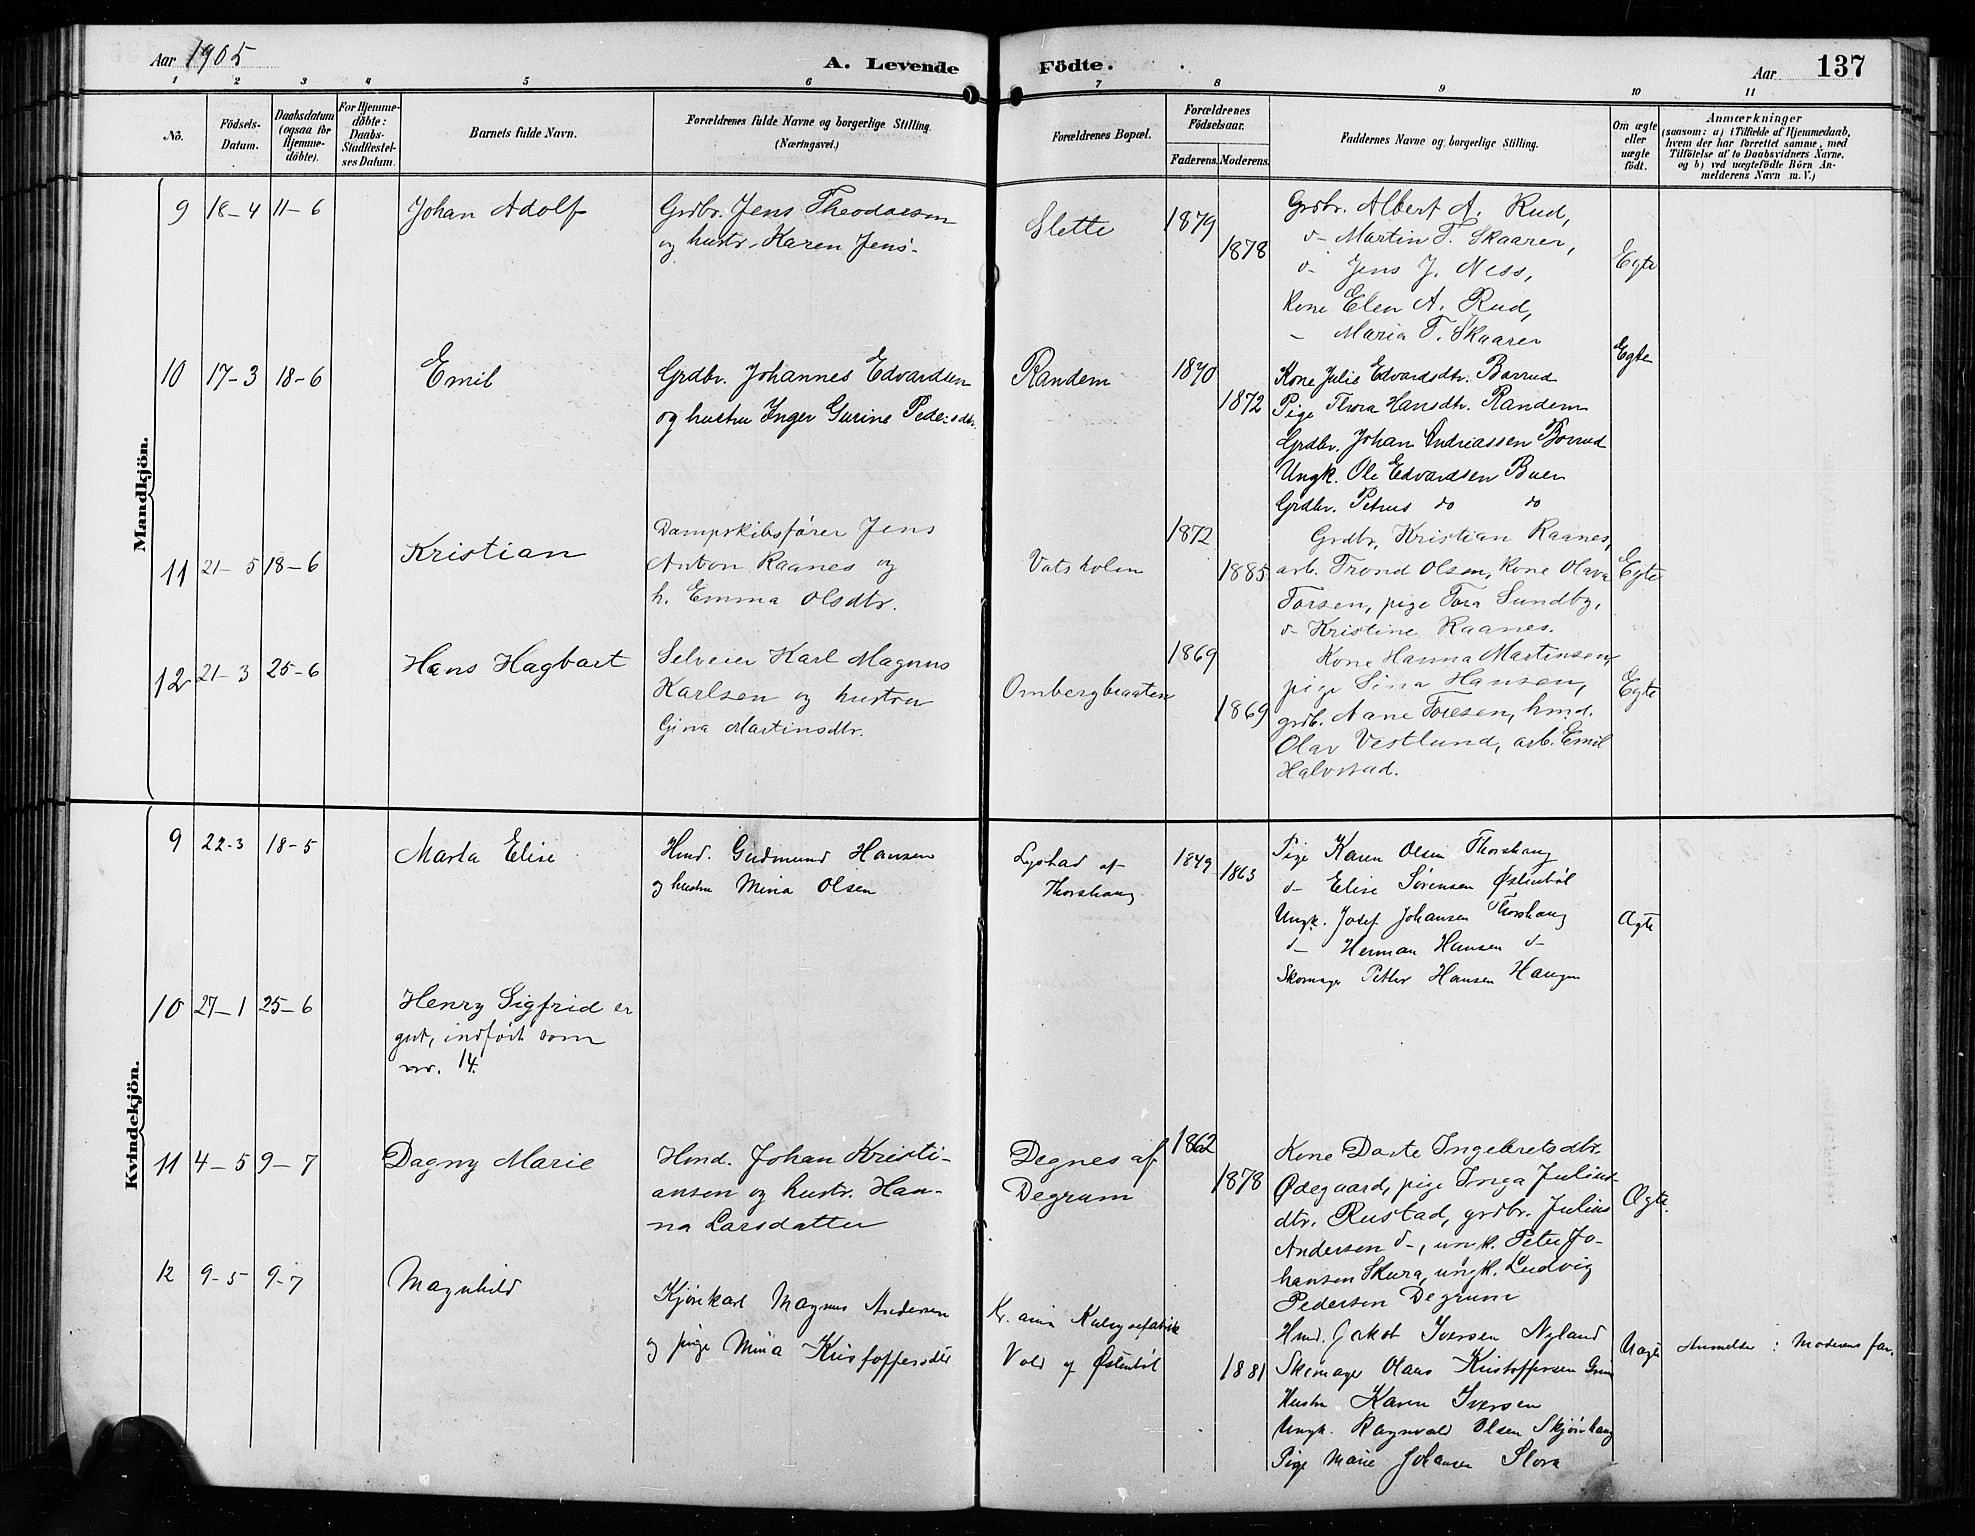 Aar 1905
A. Levende Födte.
Aar 137
1 2 3 4 5 6 7 8 9 10 11
No.
Födsels-Datum.
Daabsdatum (ogsaa for Hjemme-döbte).
For Hjemme-döbte: Daabs-Stadfæstel-ses Datum.
Barnets fulde Navn.
Forældrenes fulde Navne og borgerlige Stilling.
(Næringsvei.)
Forældrenes Bopæl.
Forældrenes Födselsaar.
Faderens. Moderens.
Faddernes Navne og borgerlige Stilling.
Om ægte eller uægte födt.
Anmærkninger
(saasom: a) i Tilfælde af Hjemmedaab,
hvem der har forrettet samme, med
Tilföielse af to Daabsvidners Navne,
og b) ved uægtefödte Börn An-
melderens Navn m. V.)
Mandkjön.
9 18-4 11-6 Johan Adolf
Grdbr. Jens Theodorsen
og hustr. Karen Jens-
Slette
1879
1878
Grdbr. Albert A. Rud,
d- Martin T. Skaarer,
d- Jens J. Ness,
Kone Elen A. Rud,
- Maria T. Skaarer
Egte
10 17-3 18-6 Emil
Grdbr. Johannes Edvardsen
og hustru Inger Gurine Pedersdtr.
Randem
1870
1872
Kone Julie Edvardsdtr. Borrud
Pige Thora Hansdtr. Randem
Grdbr. Johan Andreassen Borrud
Ungk. Ole Edvardsen Buer
Grdbr. Petrus do do
Egte
11 21-5 18-6 Kristian
Dampskibsfører Jens
Anton Raanes og
h. Emma Olsdtr.
Vatsholen
1872
1885
Grdbr. Kristian Raanes,
arb. Trond Olsen, Kone Olava
Torsen, pige Tora Sundby,
d- Kristine Raanes.
Egte
12 21-3 25-6 Hans Hagbart
Selveier Karl Magnus
Karlsen og hustru
Gina Martinsdtr.
Ombergbraaten
1869
1869
Kone Hanna Martinsen,
pige Sina Hansen,
grdb. Aane Toresen, hmd.
Olav Vestlund, arb. Emil
Halvstad.
Egte
Kvindekjön.
9 22-3 18-5 Marta Elise
Hmd. Gudmund Hansen
og hustru Mina Olsen
Lystad af
Thorshaug
1849
1863
Pige Karen Olsen Thorshaug
d- Elise Sørensen Østenbøl
Ungk. Josef Johansen Thorshaug
d- Herman Hansen d-
Skomager Petter Hansen Haugen
Ægte
10 27-1 25-6 Henry Sigfrid er
gut, indført som
nr. 14.
11 4-5 9-7 Dagny Marie
Hmd. Johan Kristi-
ansen og hustr. Han-
na Larsdatter
Degnes af
Degrum
1862
1878
Kone Dorte Ingebretsdtr.
Ødegaard, pige Inga Julius-
dtr. Rustad, grdbr. Julius
Andersen d-, ungk. Peter Jo-
hansen Skura, ungk. Ludvig
Pedersen Degrum
Ægte.
12 9-5 9-7 Magnhild
Kjørekarl Magnus Andersen
og pige Mina Kristoffersdtr
Kr.ania
Vold af Østenbøl
1881
Hmd. Jakob Iversen Nyland
Skomager Olaus Kristoffersen
Hustru Karen Iversen
Ungk. Ragnvald Olsen Skjønhaug
Pige Marie Johansen Slora
Uægte
Anmelder: Moderens far.